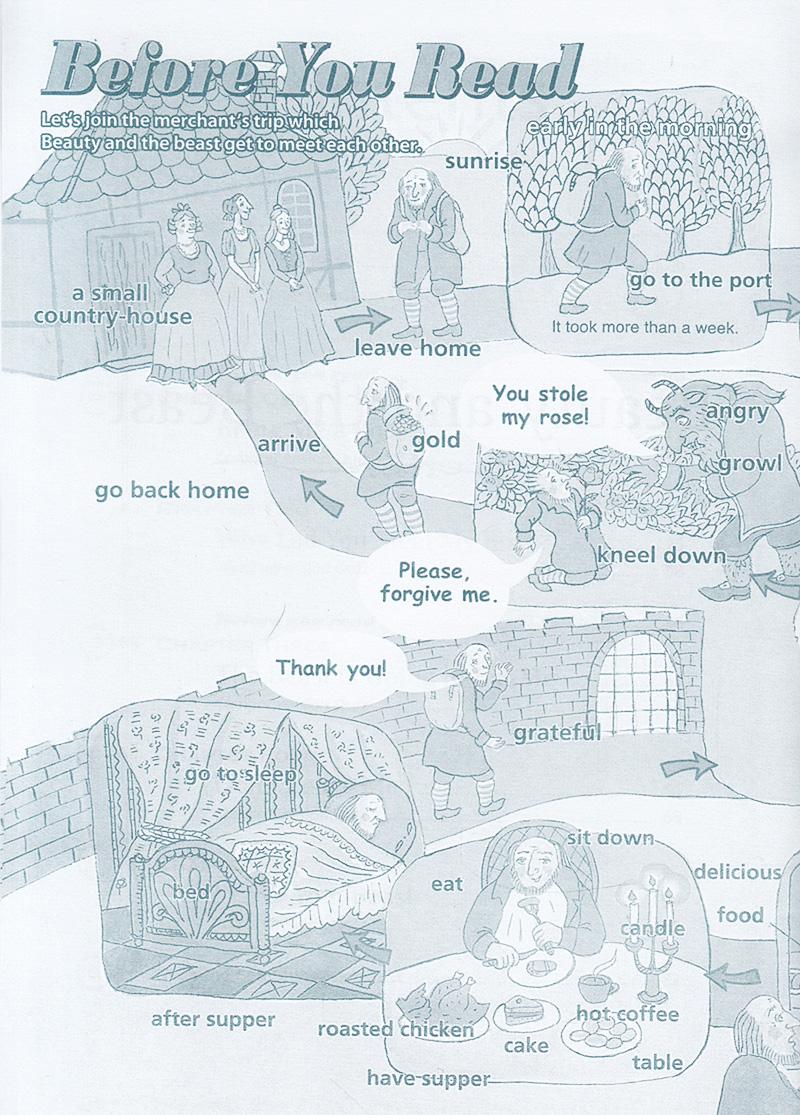 Before You Read
Let's join the merchant's trip which
Beauty and the beast get to meet each other.
early in the morning
sunrise
go to the port
a small
country-house
It took more than a week.
leave home
You stole
my rose!
angry
arrive
gold
growl
go back home
kneel down
Please,
forgive me.
Thank you!
grateful
go to sleep
sit down
delicious
eat
bed
food
candle
after supper
roasted chicken
hot coffee
cake
table
have supper